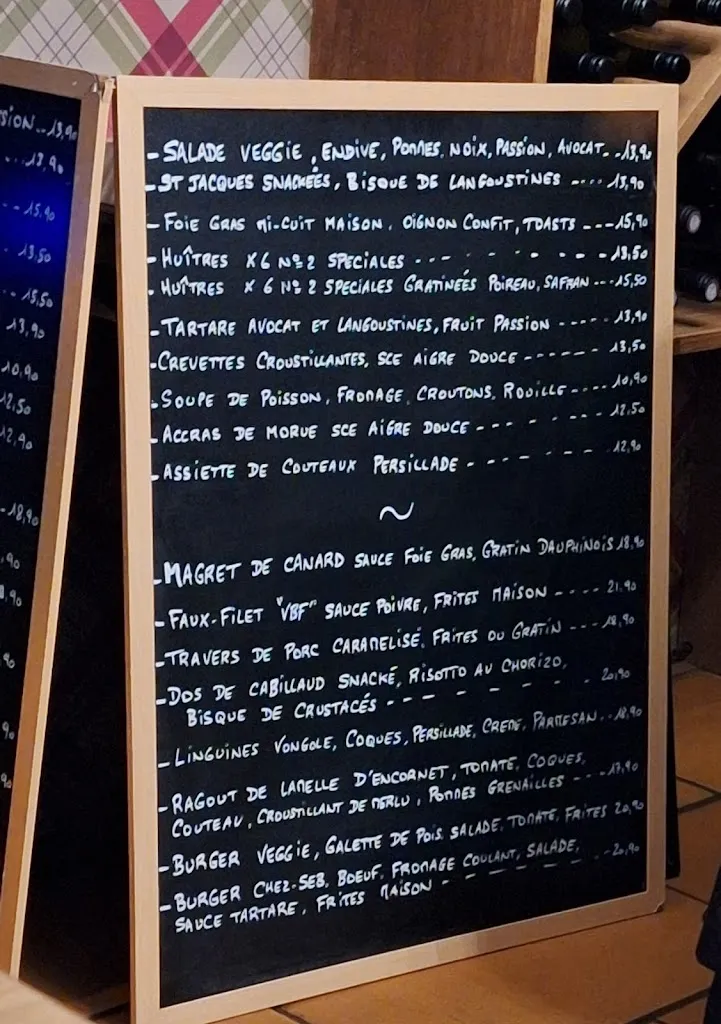 SION--13,90
--13,90
--15,90
13,50
--15,50
13,90
10,90
12,50
12,90
-18,90
,90
,90
90
90
90
-SALADE VEGGIE, ENDIVE, POMMES, NOIX, PASSION, AVOCAT--13,90
-ST JACQUES SNACKÉES, BISQUE DE LANGOUSTINES ----13,90
-FOIE GRAS MI-CUIT MAISON, OIGNON CONFIT, TOASTS ---15,90
-HUÎTRES X6 Nº2 SPECIALES - - - - - - -13,50
-HUÎTRES X 6 Nº 2 SPECIALES GRATINÉES POIREAU, SAFRAN ---15,50
-TARTARE AVOCAT ET LANGOUSTINES, FRUIT PASSION -----13,90
-CREVETTES CROUSTILLANTES, SCE AIGRE DOUCE ------13,50
-SOUPE DE POISSON, FROMAGE, CROUTONS, ROUILLE----10,90
-ACCRAS DE MORUE SCE AIGRE DOUCE - - - - - - 12,50
-ASSIETTE DE COUTEAUX PERSILLADE - - - - - - - 12,90
~
-MAGRET DE CANARD SAUCE FOIE GRAS, GRATIN DAUPHINOIS 18,90
-FAUX-FILET "VBF" SAUCE POIVRE, FRITES MAISON ---- 21,90
-TRAVERS DE PORC CARAMELISÉ, FRITES OU GRATIN ---18,90
-DOS DE CABILLAUD SNACKÉ, RISOTTO AU CHORIZO,
BISQUE DE CRUSTACÉS - - - - - - - 20,90
-LINGUINES VONGOLE, COQUES, PERSILLADE, CREME, PARMESAN..18,90
-RAGOUT DE LAMELLE D'ENCORNET, TOMATE, COQUES,
COUTEAU, CROUSTILLANT DE MERLU, POMMES GRENAILLES ---17,90
-BURGER VEGGIE, GALETTE DE POIS, SALADE, TOMATE, FRITES 20,90
-BURGER CHEZ-SEB, BOEUF, FROMAGE COULANT, SALADE,
SAUCE TARTARE, FRITES MAISON - - - - - - - - 20,90